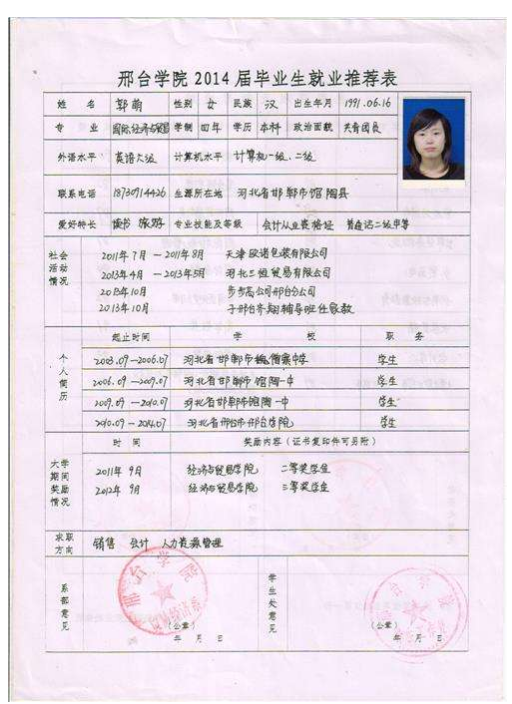 邢台学院 2014 届毕业生就业推荐表
姓 名 郭萌 性别 女 民族 汉 出生年月 1991.06.16
专 业 国际经济与贸易 学制 四年 学历 本科 政治面貌 共青团员
外语水平 英语六级 计算机水平 计算机一级、二级
联系电话 18730714426 生源所在地 河北省邯郸市馆陶县
爱好特长 读书 旅游 专业技能及等级 会计从业资格证 普通话二级甲等
社会活动情况
2011年7月 — 2011年8月 天津欧诺包装有限公司
2013年4月 — 2013年5月 河北三恒贸易有限公司
2013年10月 步步高公司邢台分公司
2013年10月 辅导班任家教
个人简历
起止时间 学 校 职 务
2003.09—2006.07 河北省邯郸市 学生
2006.09—2009.07 河北省邯郸市馆陶一中 学生
2009.09—2010.07 河北省邯郸市馆陶一中 学生
2010.09—2014.07 河北省邢台市邢台学院 学生
大学期间奖励情况
时 间 奖励内容(证书复印件可另附)
2011年 9月 经济与贸易学院 二等奖学金
2012年 9月 经济与贸易学院 三等奖学金
求职方向 销售 会计 人力资源管理
系部意见 邢台学院
(公章)
年 月 日
学生处意见
(公章)
年 月 日